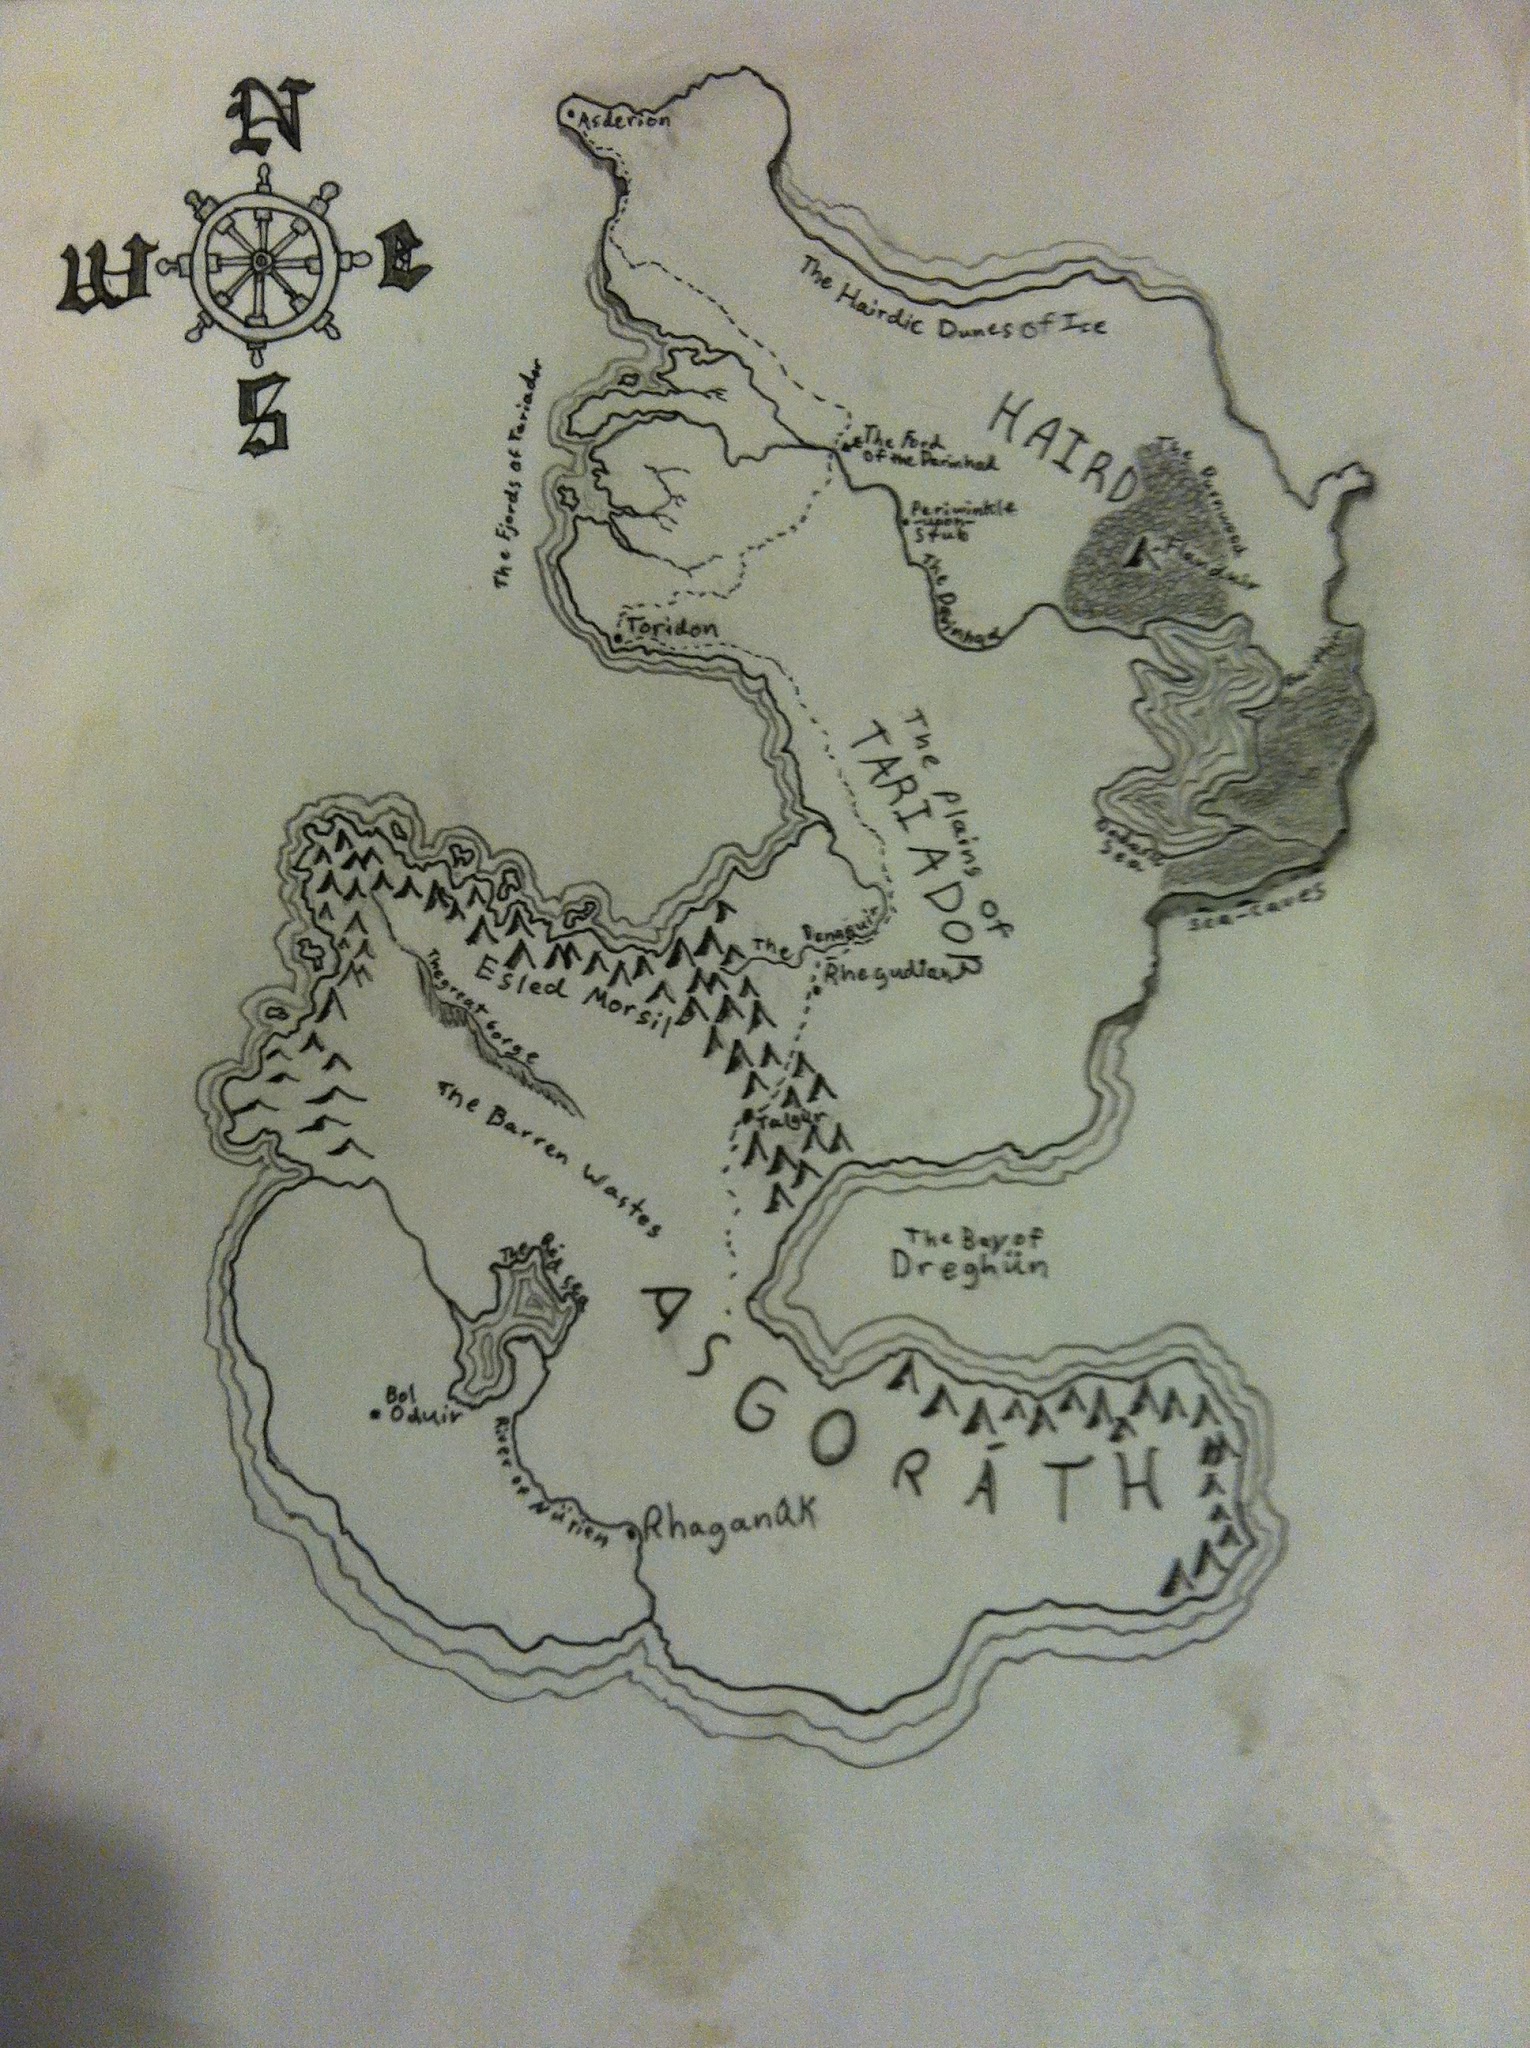 N
W
E
S
Asderion
The Hairdic Dunes of Ice
HAIRD
The Fjords of Tariador
The Ford
of the Darinhad
Periwinkle
-upon-
Stub
The Darinhad
The
Toridon
The plains of
TARIADOR
Sea
Sea-Caves
The Danaguir
Rhegudian
Esled Morsil
The great Gorge
The Barren Wastes
Talgur
The Bay of
Dreghün
The Red Sea
ASGORÁTH
Bol
Oduir
River of Núrien
Rhaganák